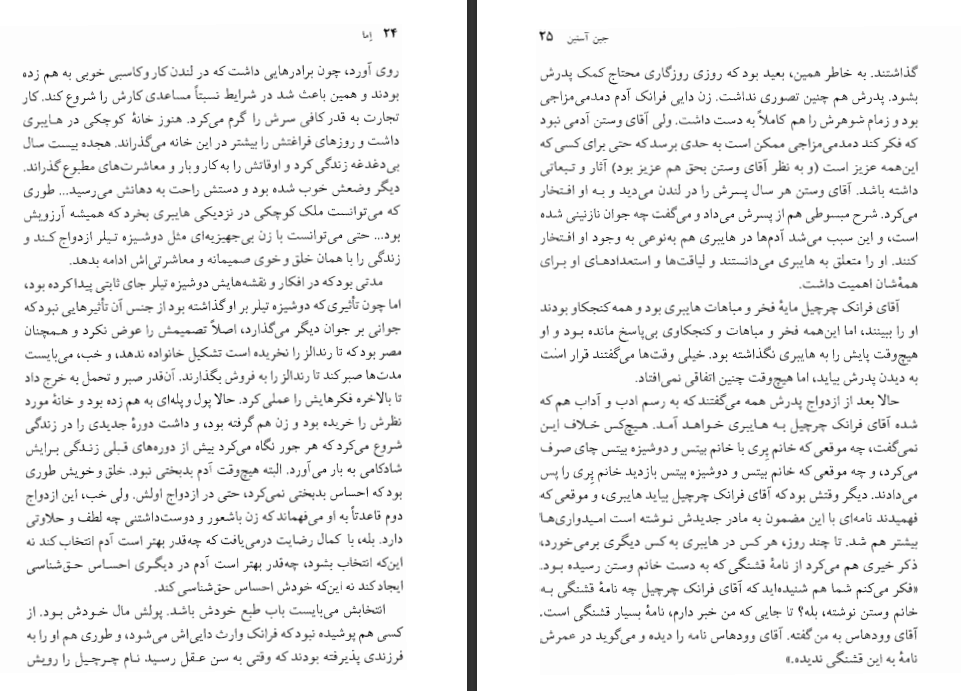 ۲۴ اِما
روی آورد، چون برادرهایی داشت که در لندن کار و کاسبی خوبی به هم زده
بودند و همین باعث شد در شرایط نسبتاً مساعدی کارش را شروع کند. کار
تجارت به قدر کافی سرش را گرم می‌کرد. هنوز خانهٔ کوچکی در هایبری
داشت و روزهای فراغتش را بیشتر در این خانه می‌گذراند. هجده بیست سال
بی‌دغدغه زندگی کرد و اوقاتش را به کار و بار و معاشرت‌های مطبوع گذراند.
دیگر وضعش خوب شده بود و دستش راحت به دهانش می‌رسید... طوری
که می‌توانست ملک کوچکی در نزدیکی هایبری بخرد که همیشه آرزویش
بود... حتی می‌توانست با زن بی‌جهیزیه‌ای مثل دوشیزه تیلر ازدواج کند و
زندگی را با همان خلق و خوی صمیمانه و معاشرتی‌اش ادامه بدهد.
مدتی بود که در افکار و نقشه‌هایش دوشیزه تیلر جای ثابتی پیدا کرده بود،
اما چون تأثیری که دوشیزه تیلر بر او گذاشته بود از جنس آن تأثیرهایی نبود که
جوانی بر جوان دیگر می‌گذارد، اصلاً تصمیمش را عوض نکرد و همچنان
مصر بود که تا رندالز را نخریده است تشکیل خانواده ندهد، و خب، می‌بایست
مدت‌ها صبر کند تا رندالز را به فروش بگذارند. آن‌قدر صبر و تحمل به خرج داد
تا بالاخره فکرهایش را عملی کرد. حالا پول و پله‌ای به هم زده بود و خانهٔ مورد
نظرش را خریده بود و زن هم گرفته بود، و داشت دورهٔ جدیدی را در زندگی
شروع می‌کرد که هر جور نگاه می‌کرد بیش از دوره‌های قبلی زندگی برایش
شادکامی به بار می‌آورد. البته هیچ‌وقت آدم بدبختی نبود. خلق و خویش طوری
بود که احساس بدبختی نمی‌کرد، حتی در ازدواج اولش. ولی خب، این ازدواج
دوم قاعدتاً به او می‌فهماند که زن باشعور و دوست‌داشتنی چه لطف و حلاوتی
دارد. بله، با کمال رضایت درمی‌یافت که چه‌قدر بهتر است آدم انتخاب کند نه
این‌که انتخاب بشود، چه‌قدر بهتر است آدم در دیگری احساس حق‌شناسی
ایجاد کند نه این‌که خودش احساس حق‌شناسی کند.
انتخابش می‌بایست باب طبع خودش باشد. پولش مال خودش بود. از
کسی هم پوشیده نبود که فرانک وارث دایی‌اش می‌شود، و طوری هم او را به
فرزندی پذیرفته بودند که وقتی به سن عقل رسید نام چرچیل را رویش
جین آستین ۲۵
گذاشتند. به خاطر همین، بعید بود که روزی روزگاری محتاج کمک پدرش
بشود. پدرش هم چنین تصوری نداشت. زن دایی فرانک آدم دمدمی‌مزاجی
بود و زمام شوهرش را هم کاملاً به دست داشت. ولی آقای وستن آدمی نبود
که فکر کند دمدمی‌مزاجی ممکن است به حدی برسد که حتی برای کسی که
این‌همه عزیز است (و به نظر آقای وستن بحق هم عزیز بود) آثار و تبعاتی
داشته باشد. آقای وستن هر سال پسرش را در لندن می‌دید و به او افتخار
می‌کرد. شرح مبسوطی هم از پسرش می‌داد و می‌گفت چه جوان نازنینی شده
است، و این سبب می‌شد آدم‌ها در هایبری هم به‌نوعی به وجود او افتخار
کنند. او را متعلق به هایبری می‌دانستند و لیاقت‌ها و استعدادهای او برای
همه‌شان اهمیت داشت.
آقای فرانک چرچیل مایهٔ فخر و مباهات هایبری بود و همه کنجکاو بودند
او را ببینند، اما این‌همه فخر و مباهات و کنجکاوی بی‌پاسخ مانده بود و او
هیچ‌وقت پایش را به هایبری نگذاشته بود. خیلی وقت‌ها می‌گفتند قرار است
به دیدن پدرش بیاید، اما هیچ‌وقت چنین اتفاقی نمی‌افتاد.
حالا بعد از ازدواج پدرش همه می‌گفتند که به رسم ادب و آداب هم که
شده آقای فرانک چرچیل به هایبری خواهد آمد. هیچ‌کس خلاف این
نمی‌گفت، چه موقعی که خانم پِری با خانم بیتس و دوشیزه بیتس چای صرف
می‌کرد، و چه موقعی که خانم بیتس و دوشیزه بیتس بازدید خانم پِری را پس
می‌دادند. دیگر وقتش بود که آقای فرانک چرچیل بیاید هایبری، و موقعی که
فهمیدند نامه‌ای با این مضمون به مادر جدیدش نوشته است امیدواری‌ها
بیشتر هم شد. تا چند روز، هر کس در هایبری به کس دیگری برمی‌خورد،
ذکر خیری هم می‌کرد از نامهٔ قشنگی که به دست خانم وستن رسیده بود.
«فکر می‌کنم شما هم شنیده‌اید که آقای فرانک چرچیل چه نامهٔ قشنگی به
خانم وستن نوشته، بله؟ تا جایی که من خبر دارم، نامهٔ بسیار قشنگی است.
آقای وودهاس به من گفته. آقای وودهاس نامه را دیده و می‌گوید در عمرش
نامهٔ به این قشنگی ندیده.»